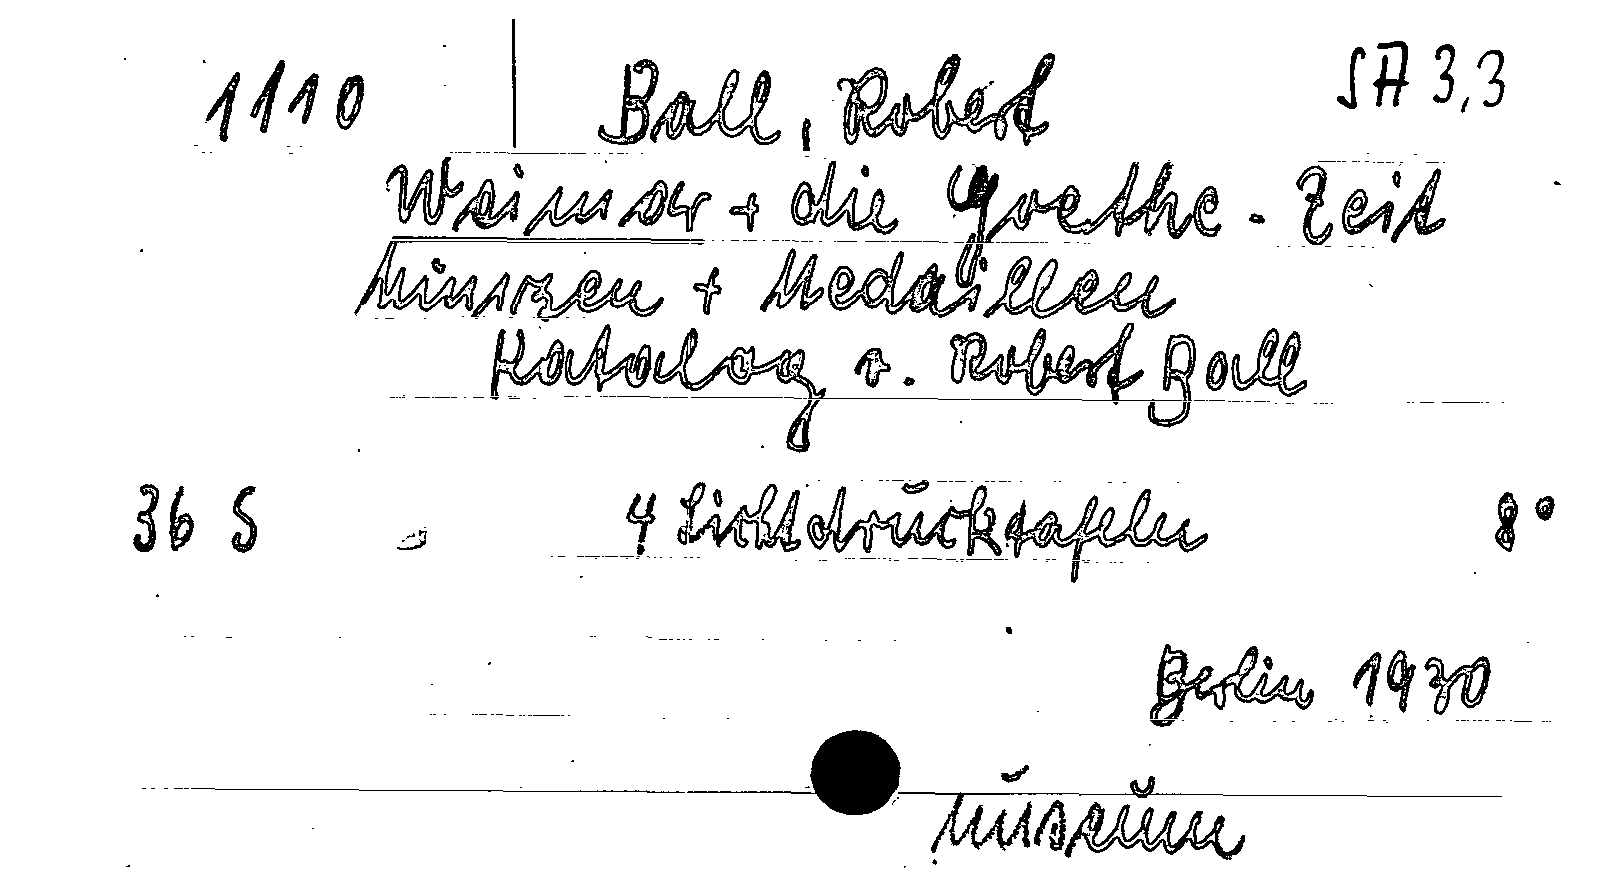 1110 Ball, Robert SA 3,3
Weimar + die Goethe-Zeit
Münzen + Medaillen
Katalog v. Robert Ball
36 S 4 Lichtdrucktafeln 8°
Berlin 1930
Museum